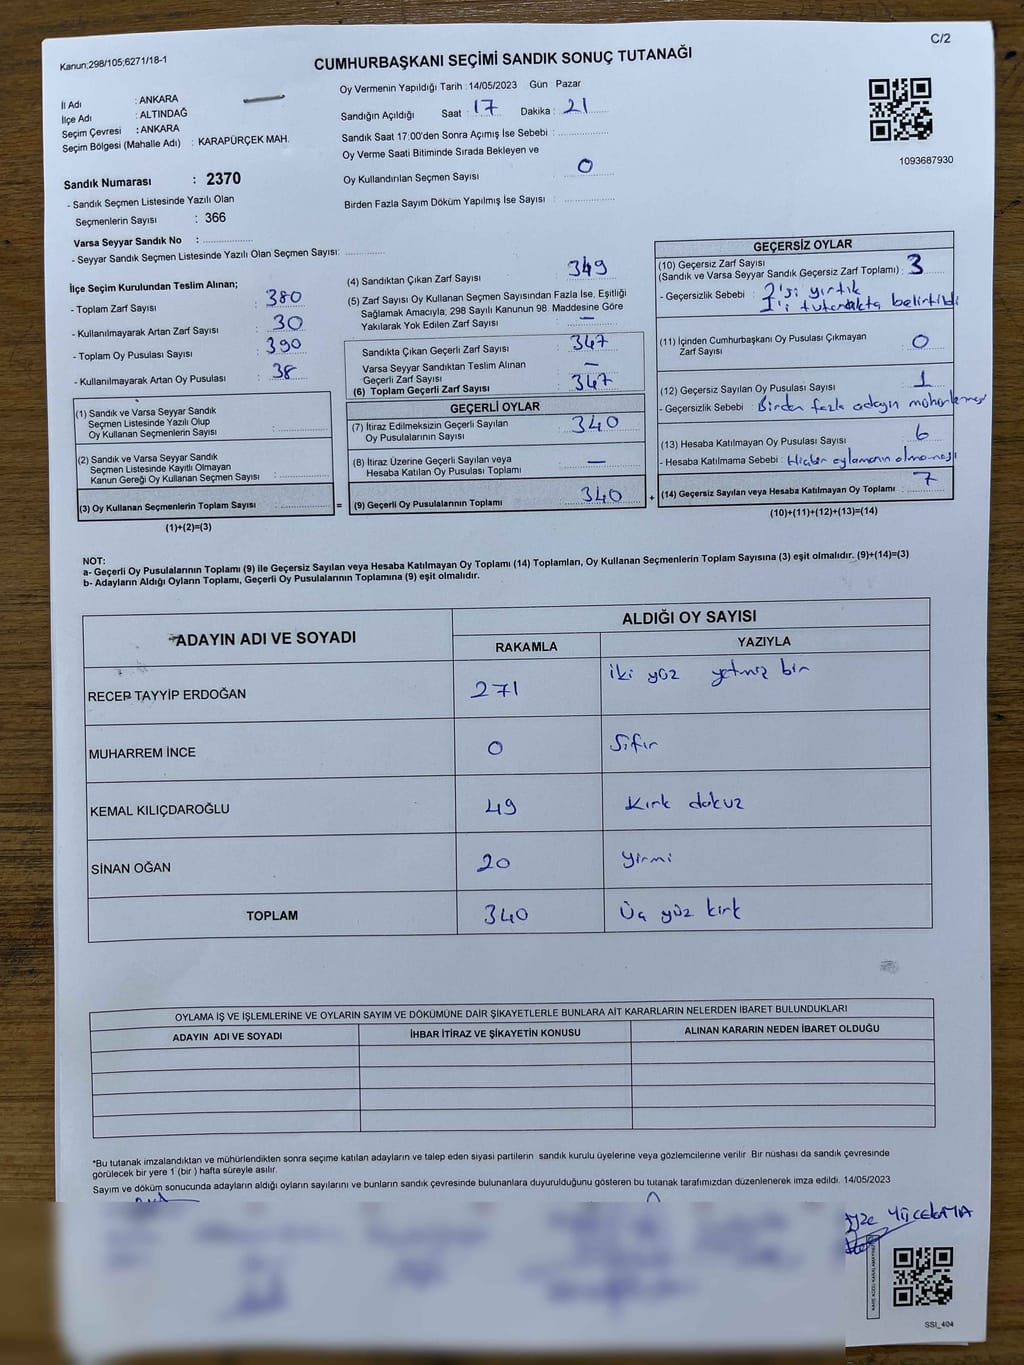 C/2
Kanun;298/105;6271/18-1
CUMHURBAŞKANI SEÇİMİ SANDIK SONUÇ TUTANAĞI
İl Adı : ANKARA
İlçe Adı : ALTINDAĞ
Seçim Çevresi : ANKARA
Seçim Bölgesi (Mahalle Adı) : KARAPÜRÇEK MAH.
Sandık Numarası : 2370
- Sandık Seçmen Listesinde Yazılı Olan
Seçmenlerin Sayısı : 366
Varsa Seyyar Sandık No :
- Seyyar Sandık Seçmen Listesinde Yazılı Olan Seçmen Sayısı:
Oy Vermenin Yapıldığı Tarih :14/05/2023 Gün Pazar
Sandığın Açıldığı Saat : 17 Dakika : 21
Sandık Saat 17:00'den Sonra Açımış İse Sebebi :
Oy Verme Saati Bitiminde Sırada Bekleyen ve
Oy Kullandırılan Seçmen Sayısı : 0
Birden Fazla Sayım Döküm Yapılmış İse Sayısı :
1093687930
İlçe Seçim Kurulundan Teslim Alınan;
- Toplam Zarf Sayısı : 380
- Kullanılmayarak Artan Zarf Sayısı : 30
- Toplam Oy Pusulası Sayısı : 390
- Kullanılmayarak Artan Oy Pusulası : 38
(1) Sandık ve Varsa Seyyar Sandık
Seçmen Listesinde Yazılı Olup
Oy Kullanan Seçmenlerin Sayısı :
(2) Sandık ve Varsa Seyyar Sandık
Seçmen Listesinde Kayıtlı Olmayan
Kanun Gereği Oy Kullanan Seçmen Sayısı :
(3) Oy Kullanan Seçmenlerin Toplam Sayısı :
(1)+(2)=(3)
(4) Sandıktan Çıkan Zarf Sayısı : 349
(5) Zarf Sayısı Oy Kullanan Seçmen Sayısından Fazla İse, Eşitliği
Sağlamak Amacıyla, 298 Sayılı Kanunun 98. Maddesine Göre
Yakılarak Yok Edilen Zarf Sayısı : —
Sandıkta Çıkan Geçerli Zarf Sayısı : 347
Varsa Seyyar Sandıktan Teslim Alınan
Geçerli Zarf Sayısı : —
(6) Toplam Geçerli Zarf Sayısı : 347
GEÇERLİ OYLAR
(7) İtiraz Edilmeksizin Geçerli Sayılan
Oy Pusulalarının Sayısı : 340
(8) İtiraz Üzerine Geçerli Sayılan veya
Hesaba Katılan Oy Pusulası Toplamı : —
= (9) Geçerli Oy Pusulalarının Toplamı : 340 +
GEÇERSİZ OYLAR
(10) Geçersiz Zarf Sayısı
(Sandık ve Varsa Seyyar Sandık Geçersiz Zarf Toplamı) : 3
- Geçersizlik Sebebi : 2'si yırtık
1'i tutanakta belirtildi
(11) İçinden Cumhurbaşkanı Oy Pusulası Çıkmayan
Zarf Sayısı : 0
(12) Geçersiz Sayılan Oy Pusulası Sayısı : 1
- Geçersizlik Sebebi : Birden fazla adayın mühürlemesi
(13) Hesaba Katılmayan Oy Pusulası Sayısı : 6
- Hesaba Katılmama Sebebi : Hiçbir oylamanın olmaması
(14) Geçersiz Sayılan veya Hesaba Katılmayan Oy Toplamı : 7
(10)+(11)+(12)+(13)=(14)
NOT:
a- Geçerli Oy Pusulalarının Toplamı (9) ile Geçersiz Sayılan veya Hesaba Katılmayan Oy Toplamı (14) Toplamları, Oy Kullanan Seçmenlerin Toplam Sayısına (3) eşit olmalıdır. (9)+(14)=(3)
b- Adayların Aldığı Oyların Toplamı, Geçerli Oy Pusulalarının Toplamına (9) eşit olmalıdır.
ADAYIN ADI VE SOYADI ALDIĞI OY SAYISI
RAKAMLA YAZIYLA
RECEP TAYYİP ERDOĞAN 271 iki yüz yetmiş bir
MUHARREM İNCE 0 Sıfır
KEMAL KILIÇDAROĞLU 49 Kırk dokuz
SİNAN OĞAN 20 Yirmi
TOPLAM 340 Üç yüz kırk
OYLAMA İŞ VE İŞLEMLERİNE VE OYLARIN SAYIM VE DÖKÜMÜNE DAİR ŞİKAYETLERLE BUNLARA AİT KARARLARIN NELERDEN İBARET BULUNDUKLARI
ADAYIN ADI VE SOYADI İHBAR İTİRAZ VE ŞİKAYETİN KONUSU ALINAN KARARIN NEDEN İBARET OLDUĞU
*Bu tutanak imzalandıktan ve mühürlendikten sonra seçime katılan adayların ve talep eden siyasi partilerin sandık kurulu üyelerine veya gözlemcilerine verilir. Bir nüshası da sandık çevresinde
görülecek bir yere 1 (bir ) hafta süreyle asılır.
Sayım ve döküm sonucunda adayların aldığı oyların sayılarını ve bunların sandık çevresinde bulunanlara duyurulduğunu gösteren bu tutanak tarafımızdan düzenlenerek imza edildi. 14/05/2023
SSI_404